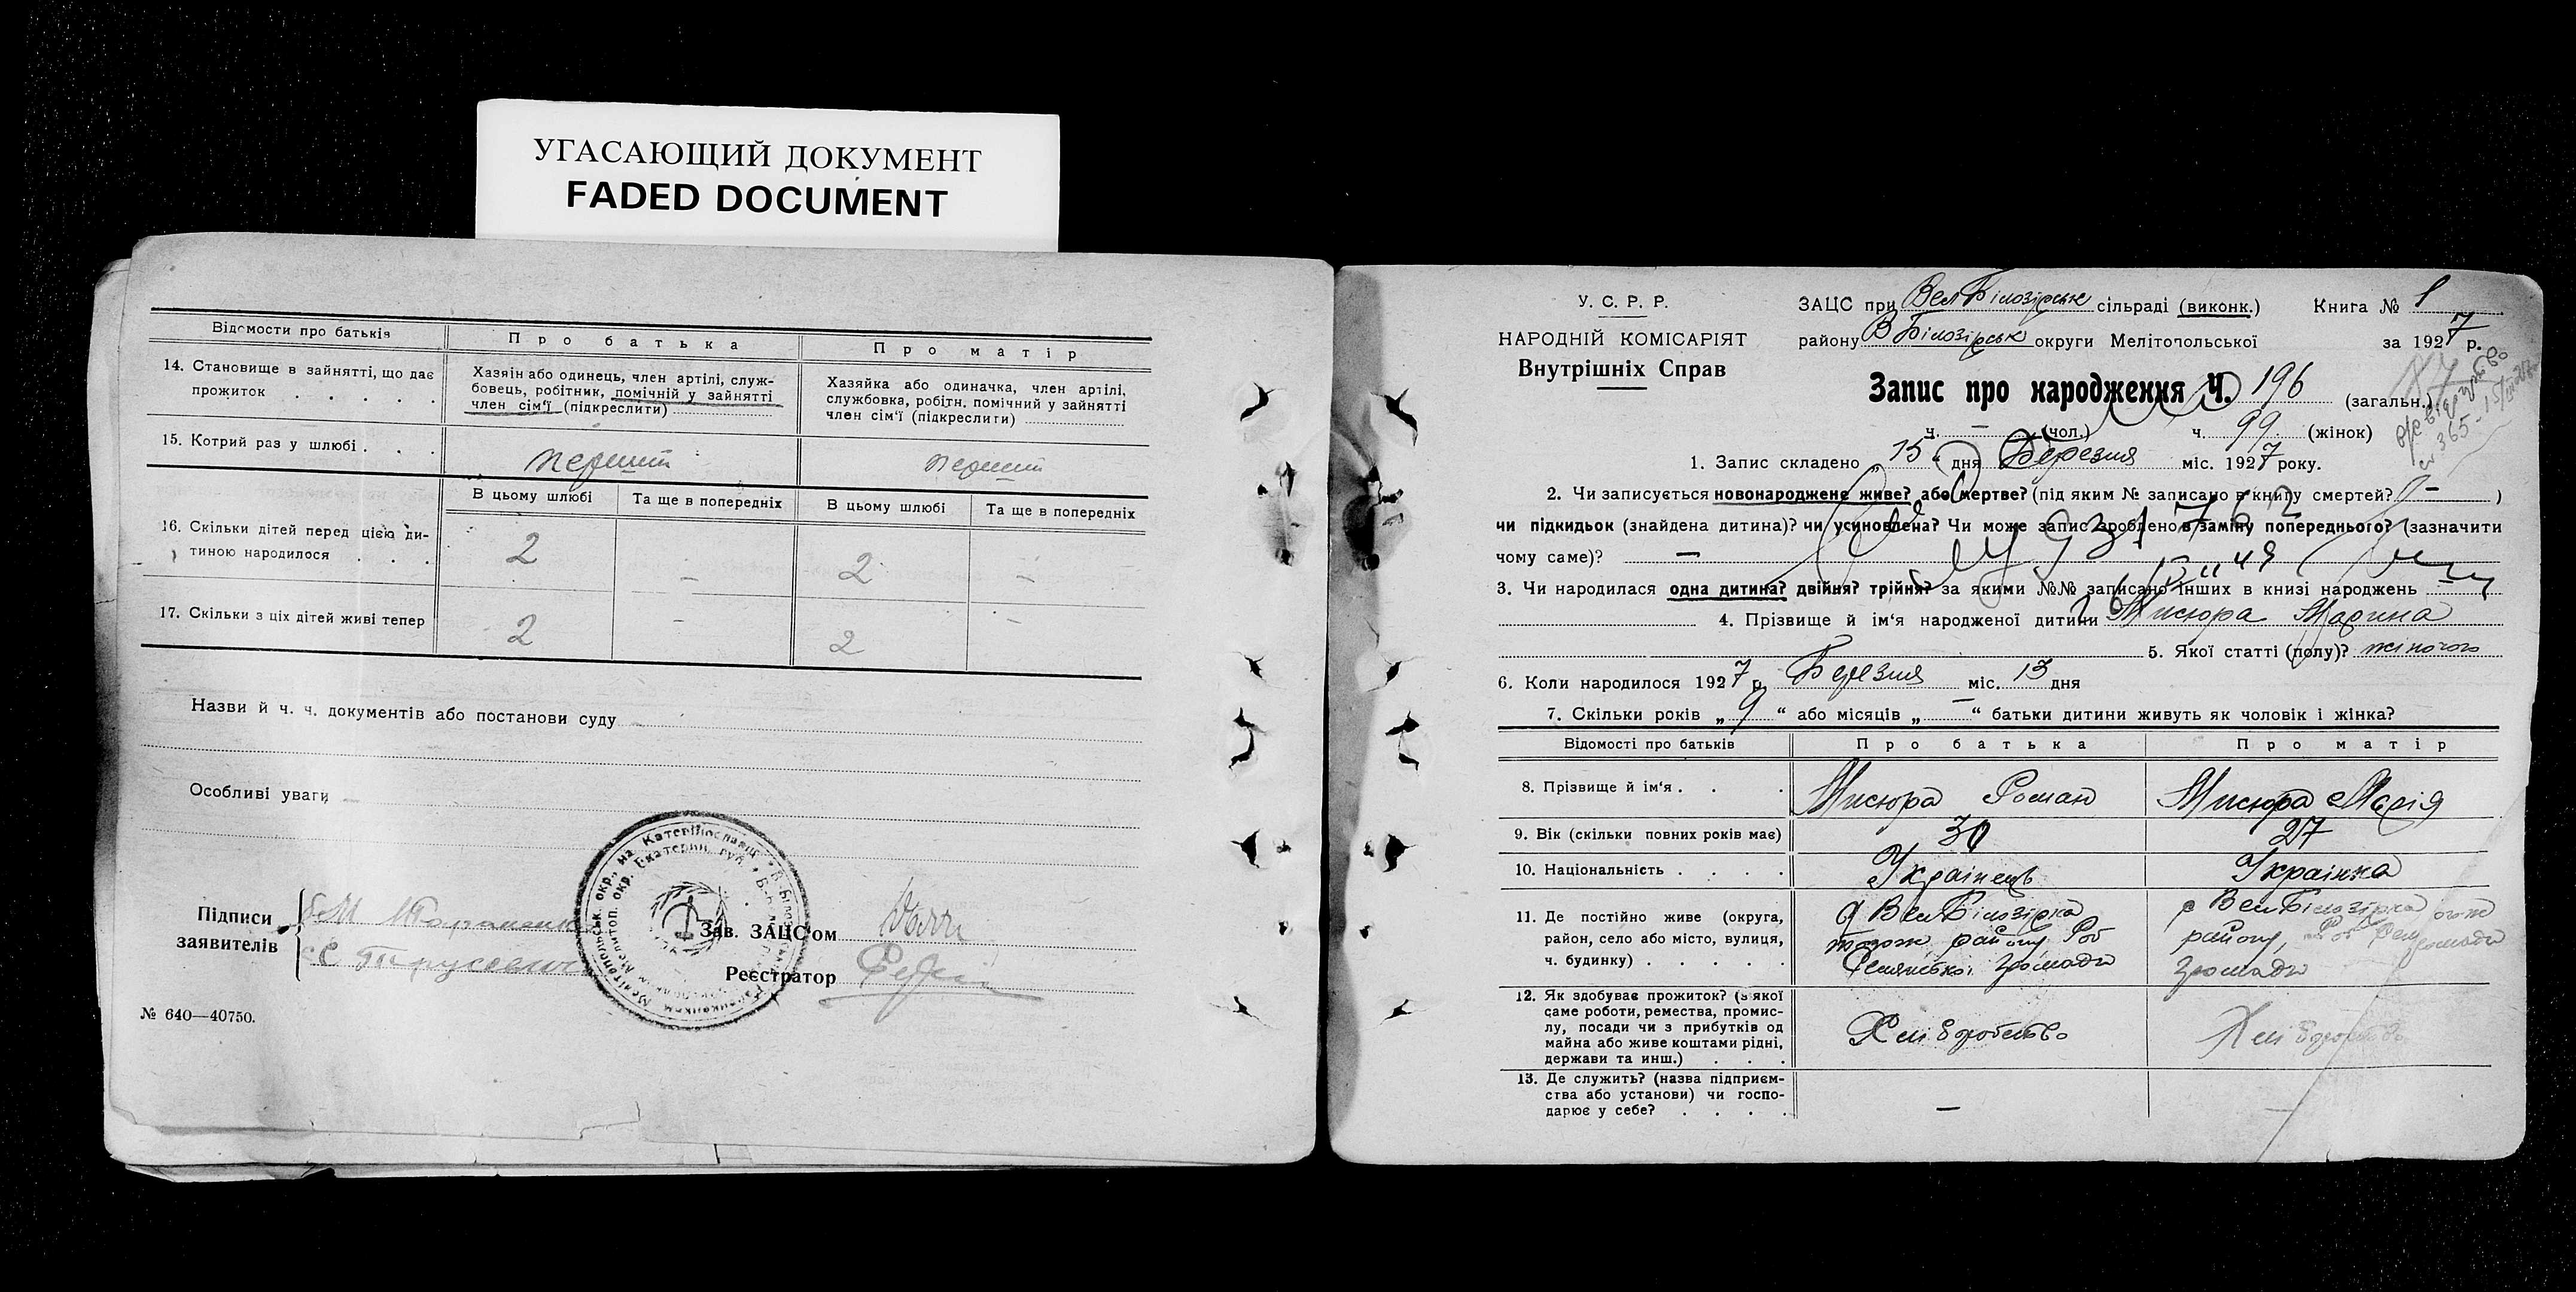 УГАСАЮЩИЙ ДОКУМЕНТ
FADED DOCUMENT
Відомости про батьків
Про батька
Про матір
14. Становище в зайнятті, що дає
прожиток . . . . .
Хазяін або одинець, член артілі, служ-
бовець, робітник, помічній у зайнятті
член сім'ї (підкреслити)
Хазяйка або одиначка, член артілі,
службовка, робітн. помічний у зайнятті
член сім'ї (підкреслити)
15. Котрий раз у шлюбі . . .
перший
перший
В цьому шлюбі
Та ще в попередніх
В цьому шлюбі
Та ще в попередніх
16. Скільки дітей перед цією ди-
тиною народилося . . .
2 – 2 –
17. Скільки з ціх дітей живі тепер
2 – 2 –
Назви й ч. ч. документів або постанови суду
Особливі уваги
Підписи
заявителів
Зав. ЗАЦС'ом
Реєстратор
№ 640—40750.
У. С. Р. Р.
НАРОДНІЙ КОМІСАРІЯТ
Внутрішніх Справ
ЗАЦС при Вел Білозірськ сільраді (виконк.) Книга № 1
району В Білозірськ округи Мелітопольської за 1927 р.
Запис про народження Ч. 196 (загальн.)
ч. – (чол.) ч. 99. (жінок)
1. Запис складено „15“ дня Березня міс. 1927 року.
2. Чи записується новонароджене живе? або мертве? (під яким № записано в книгу смертей? – )
чи підкидьок (знайдена дитина)? чи усиновлена? Чи може запис зроблено в заміну попереднього? (зазначити
чому саме)? –
3. Чи народилася одна дитина? двійня? трійня? за якими №№ записано інших в книзі народжень –
4. Прізвище й ім'я народженої дитини Мисюра Марина
5. Якої статті (полу)? жіночого
6. Коли народилося 1927 р. Березня міс. 13 дня
7. Скільки років „9“ або місяців „–“ батьки дитини живуть як чоловік і жінка?
Відомості про батьків
Про батька
Про матір
8. Прізвище й ім'я . . .
Мисюра Роман
Мисюра Марія
9. Вік (скільки повних років має)
30
27
10. Національність . . . .
Українець
Українка
11. Де постійно живе (округа,
район, село або місто, вулиця,
ч. будинку) . . . . .
Вел Білозірка
тогож району
громади
с Вел Білозірка
району,
громади
12. Як здобуває прожиток? (з якої
саме роботи, ремества, промис-
лу, посади чи з прибутків од
майна або живе коштами рідні,
держави та инш.) . . .
Хліборобство
Хліборобство
13. Де служить? (назва підприєм-
ства або установи) чи госпо-
дарює у себе? . . . .
–
–